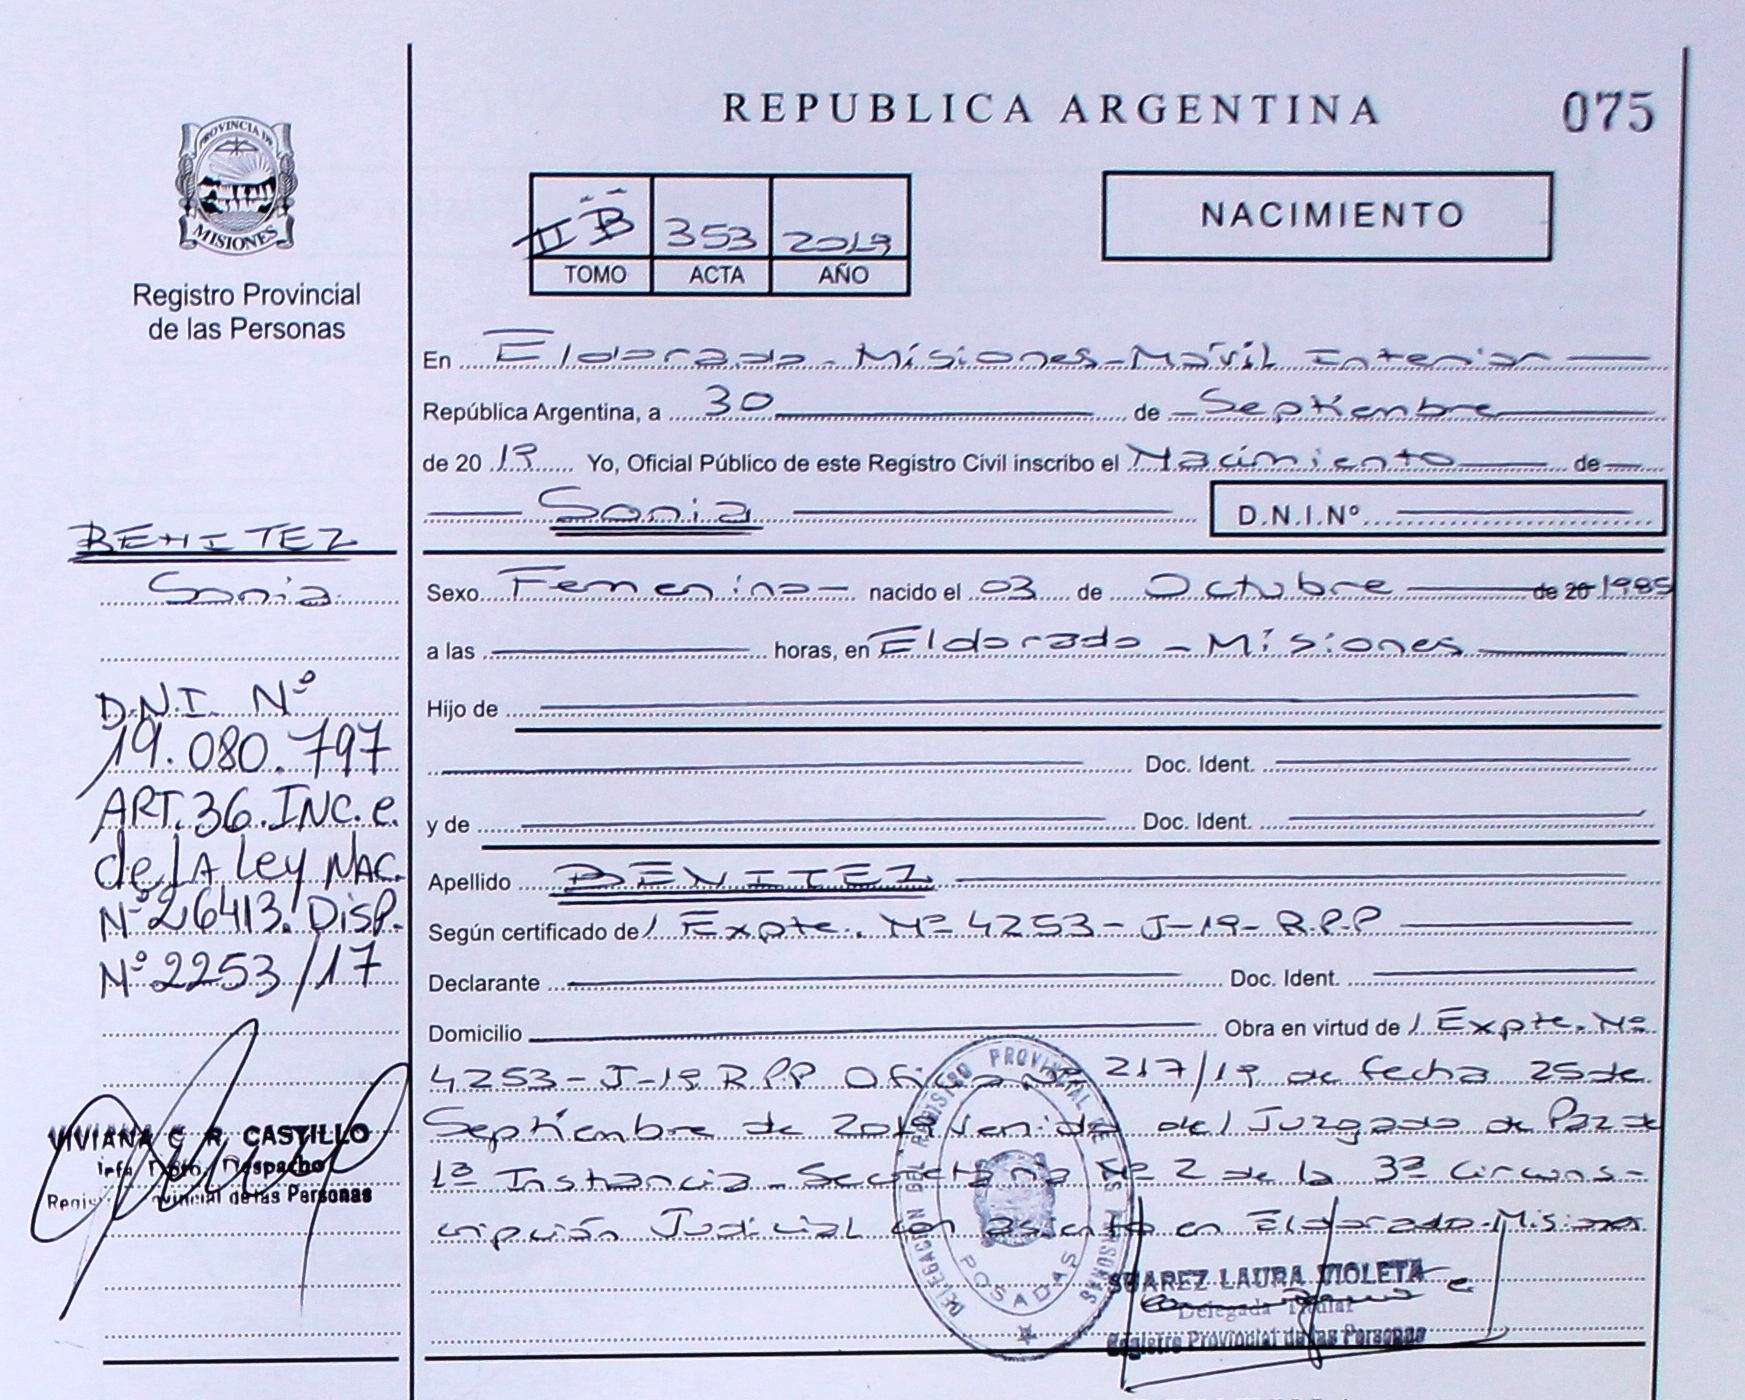 REPUBLICA ARGENTINA
075
PROVINCIA DE
MISIONES
Registro Provincial
de las Personas
II B 353 2019
TOMO ACTA AÑO
NACIMIENTO
En Eldorado - Misiones - Móvil Interior
República Argentina, a 30 de Septiembre
de 20 19 Yo, Oficial Público de este Registro Civil inscribo el Nacimiento de
Sonia D.N.I.Nº
BENITEZ
Sonia
D.N.I. Nº
19.080.797
ART. 36. INC. e.
de LA Ley NAC.
Nº 26413. DISP.
Nº 2253/17
VIVIANA C. R. CASTILLO
Despacho
de las Personas
Sexo Femenino nacido el 03 de Octubre de 20 1985
a las horas, en Eldorado - Misiones
Hijo de
Doc. Ident.
y de Doc. Ident.
Apellido BENITEZ
Según certificado de / Expte. Nº 4253-J-19- R.P.P
Declarante Doc. Ident.
Domicilio Obra en virtud de / Expte. Nº
4253-J-19 R.P.P Oficio Nº 217/19 de fecha 25 de
Septiembre de 2019 venido del Juzgado de Paz de
1ª Instancia - Secretaria Nº 2 de la 3ª Circuns-
cripción Judicial con asiento en Eldorado-Misiones
DELEGACIÓN DEL REGISTRO PROVINCIAL DE LAS PERSONAS
POSADAS
SUAREZ LAURA VIOLETA
Delegada Titular
Registro Provincial de las Personas